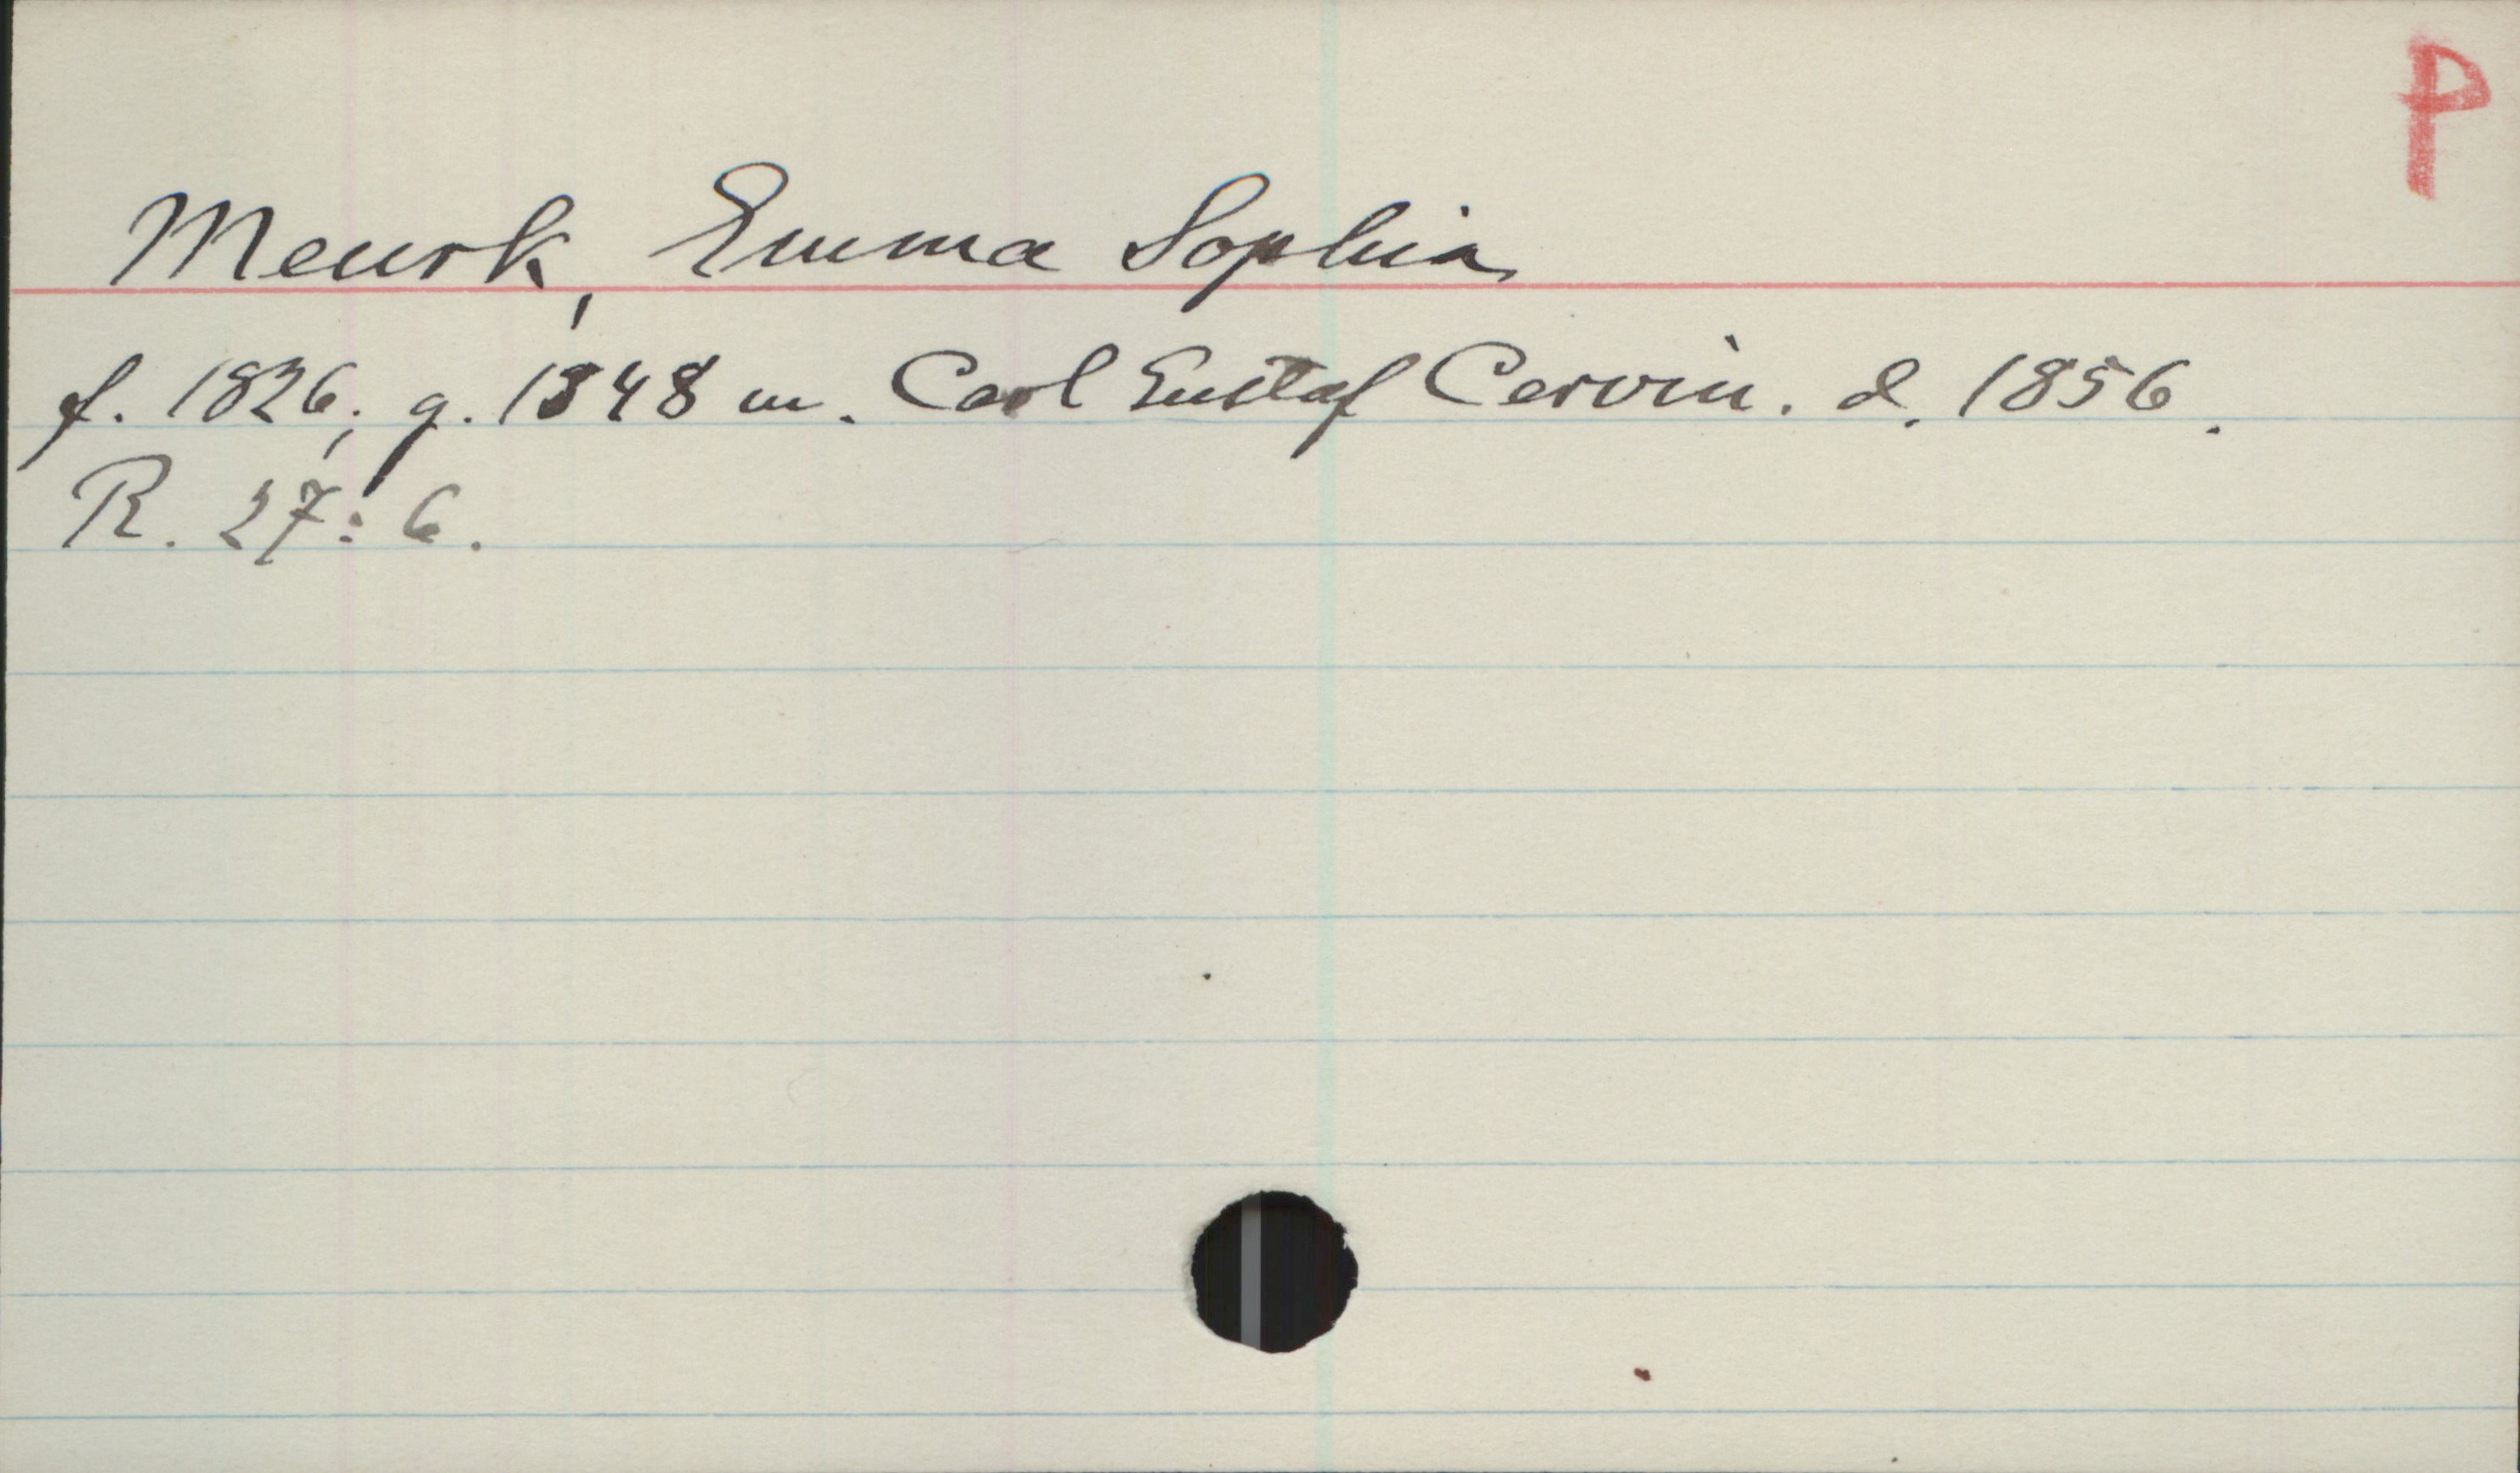 P
Meurk, Emma Sophia
f. 1826; g. 1848 m. Carl Gustaf Cervin. d. 1856.
R. 27: 6.